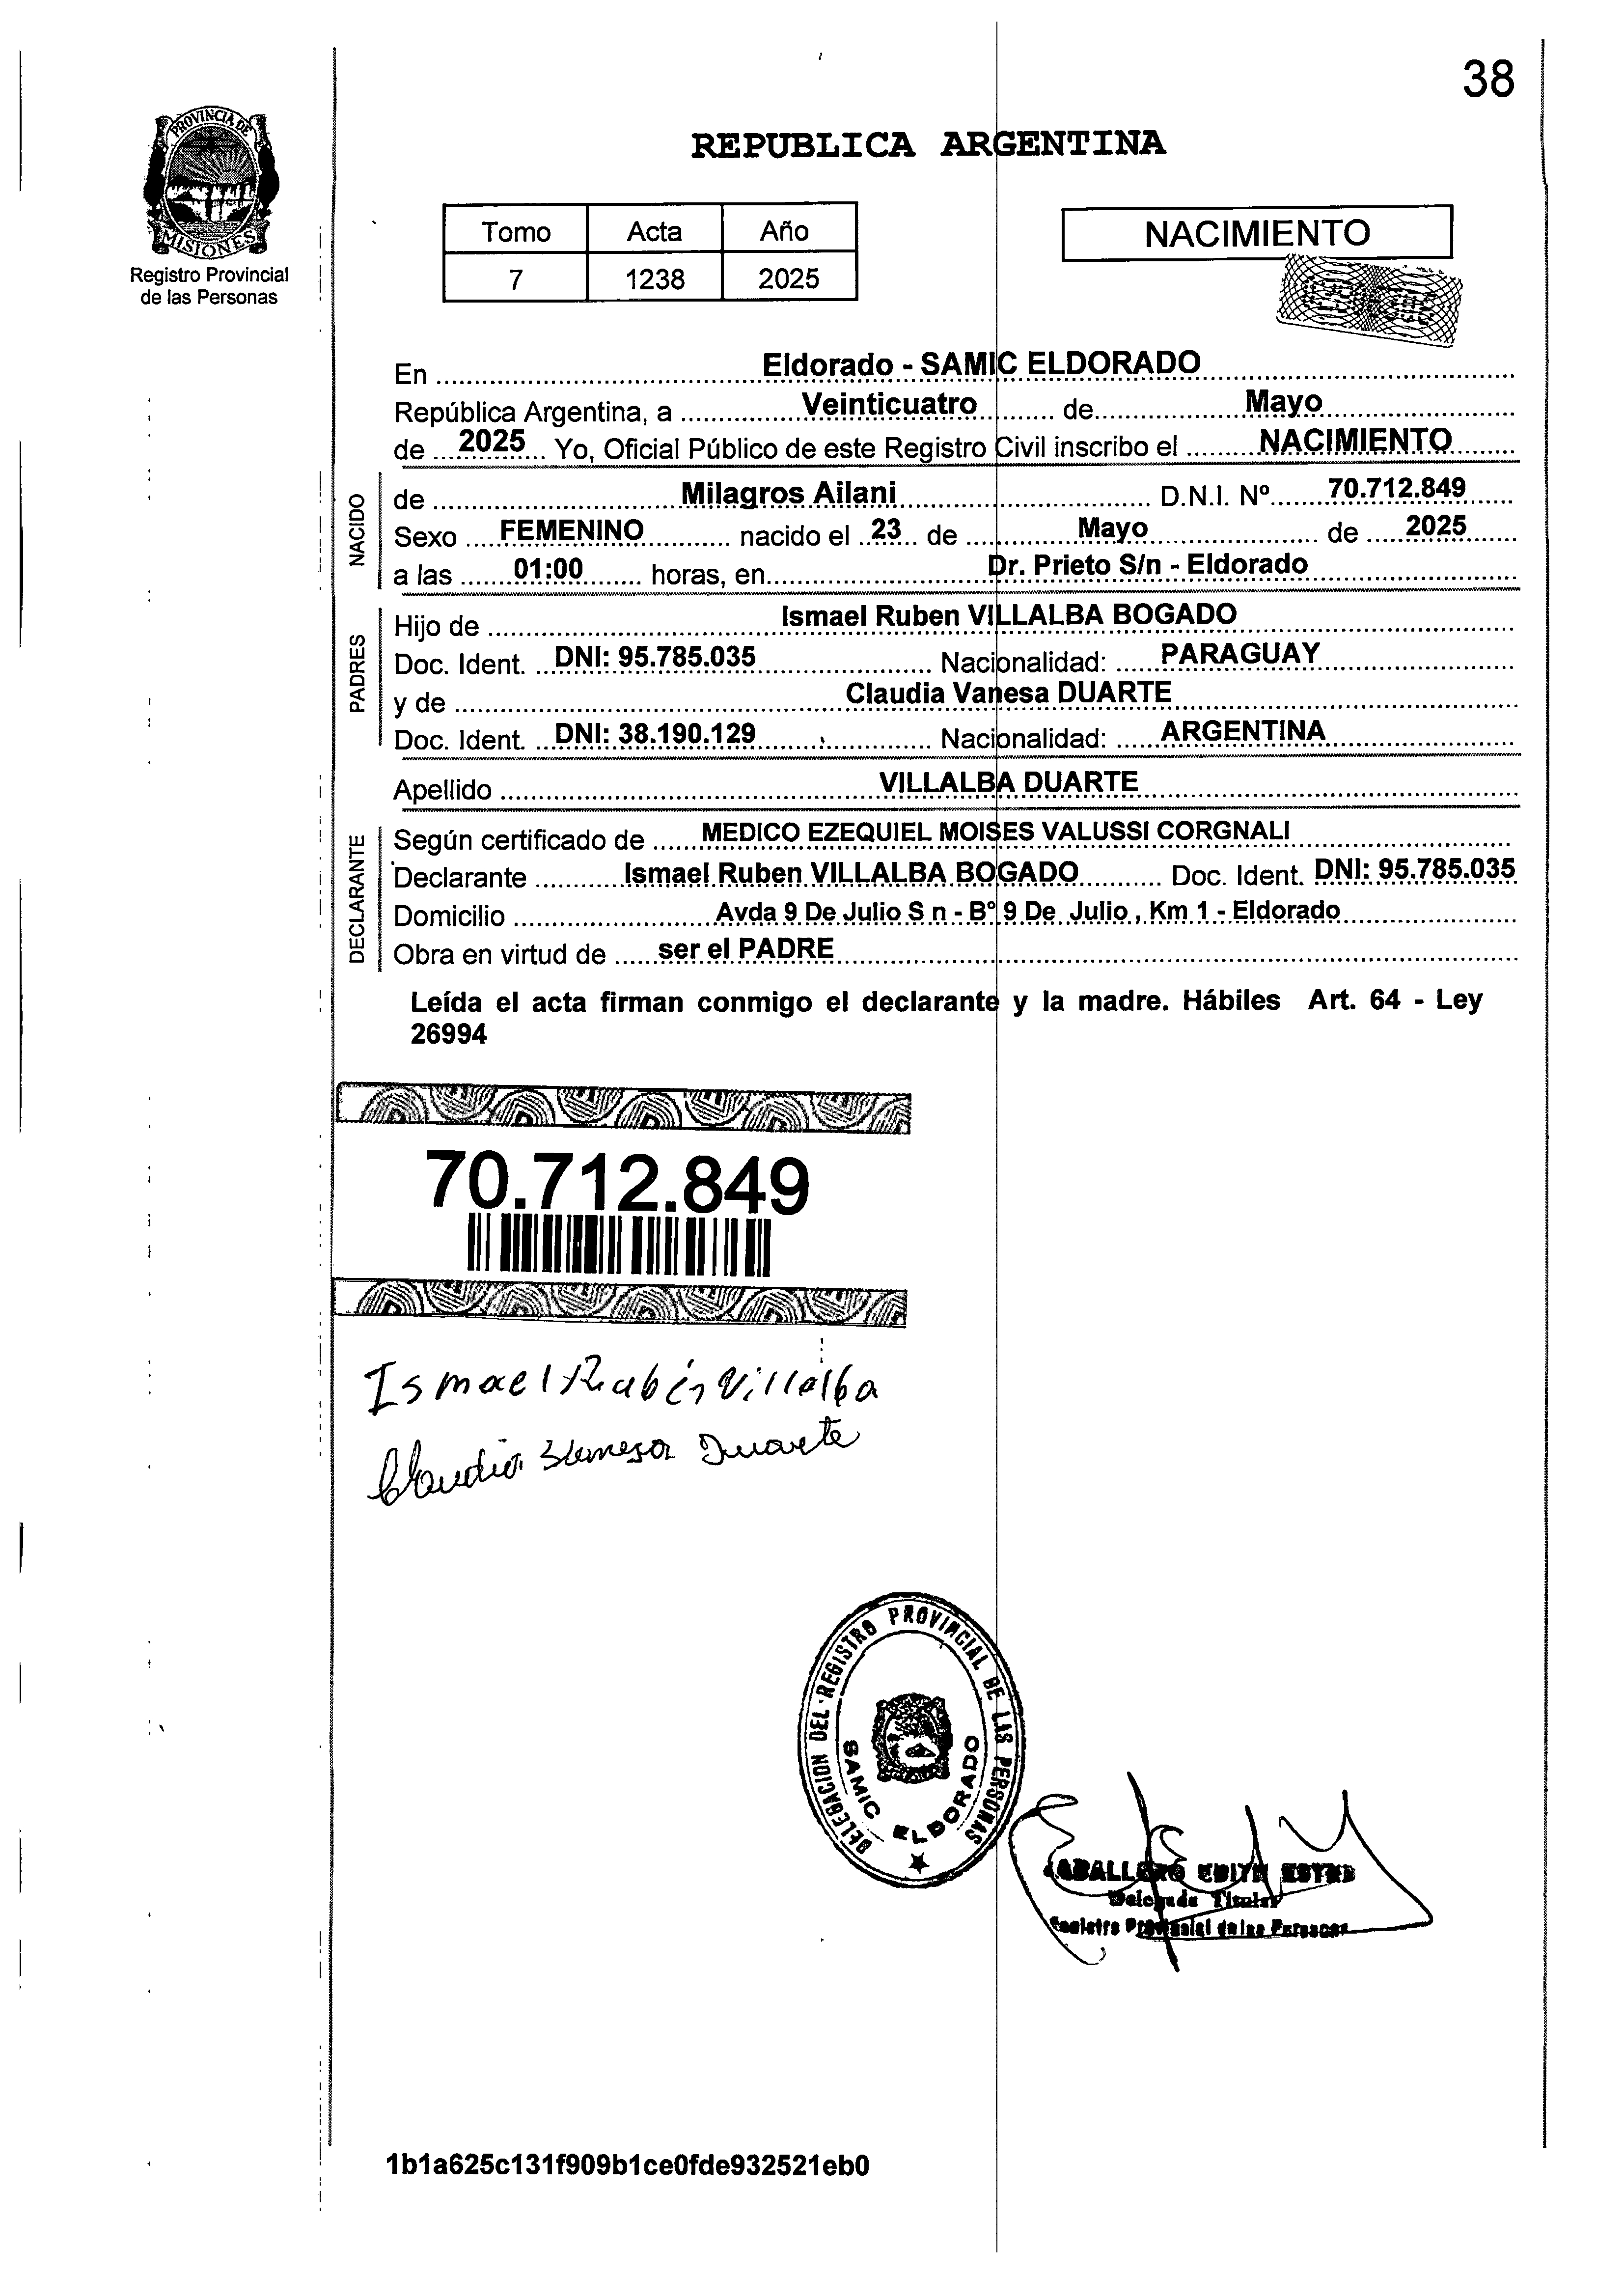 38
PROVINCIA DE
MISIONES
Registro Provincial
de las Personas
REPUBLICA ARGENTINA
Tomo Acta Año
7 1238 2025
NACIMIENTO
En Eldorado - SAMIC ELDORADO
República Argentina, a Veinticuatro de Mayo
de 2025 Yo, Oficial Público de este Registro Civil inscribo el NACIMIENTO
NACIDO
de Milagros Ailani D.N.I. Nº 70.712.849
Sexo FEMENINO nacido el 23 de Mayo de 2025
a las 01:00 horas, en Dr. Prieto S/n - Eldorado
PADRES
Hijo de Ismael Ruben VILLALBA BOGADO
Doc. Ident. DNI: 95.785.035 Nacionalidad: PARAGUAY
y de Claudia Vanesa DUARTE
Doc. Ident. DNI: 38.190.129 Nacionalidad: ARGENTINA
Apellido VILLALBA DUARTE
DECLARANTE
Según certificado de MEDICO EZEQUIEL MOISES VALUSSI CORGNALI
Declarante Ismael Ruben VILLALBA BOGADO Doc. Ident. DNI: 95.785.035
Domicilio Avda 9 De Julio S n - Bº 9 De Julio , Km 1 - Eldorado
Obra en virtud de ser el PADRE
Leída el acta firman conmigo el declarante y la madre. Hábiles Art. 64 - Ley
26994
70.712.849
Ismael Rubén Villalba
Claudia Vanesa Duarte
DELEGACION DEL REGISTRO PROVINCIAL DE LAS PERSONAS
SAMIC ELDORADO
CABALLERO EDITH
Delegada Titular
Registro Provincial de las Personas
1b1a625c131f909b1ce0fde932521eb0